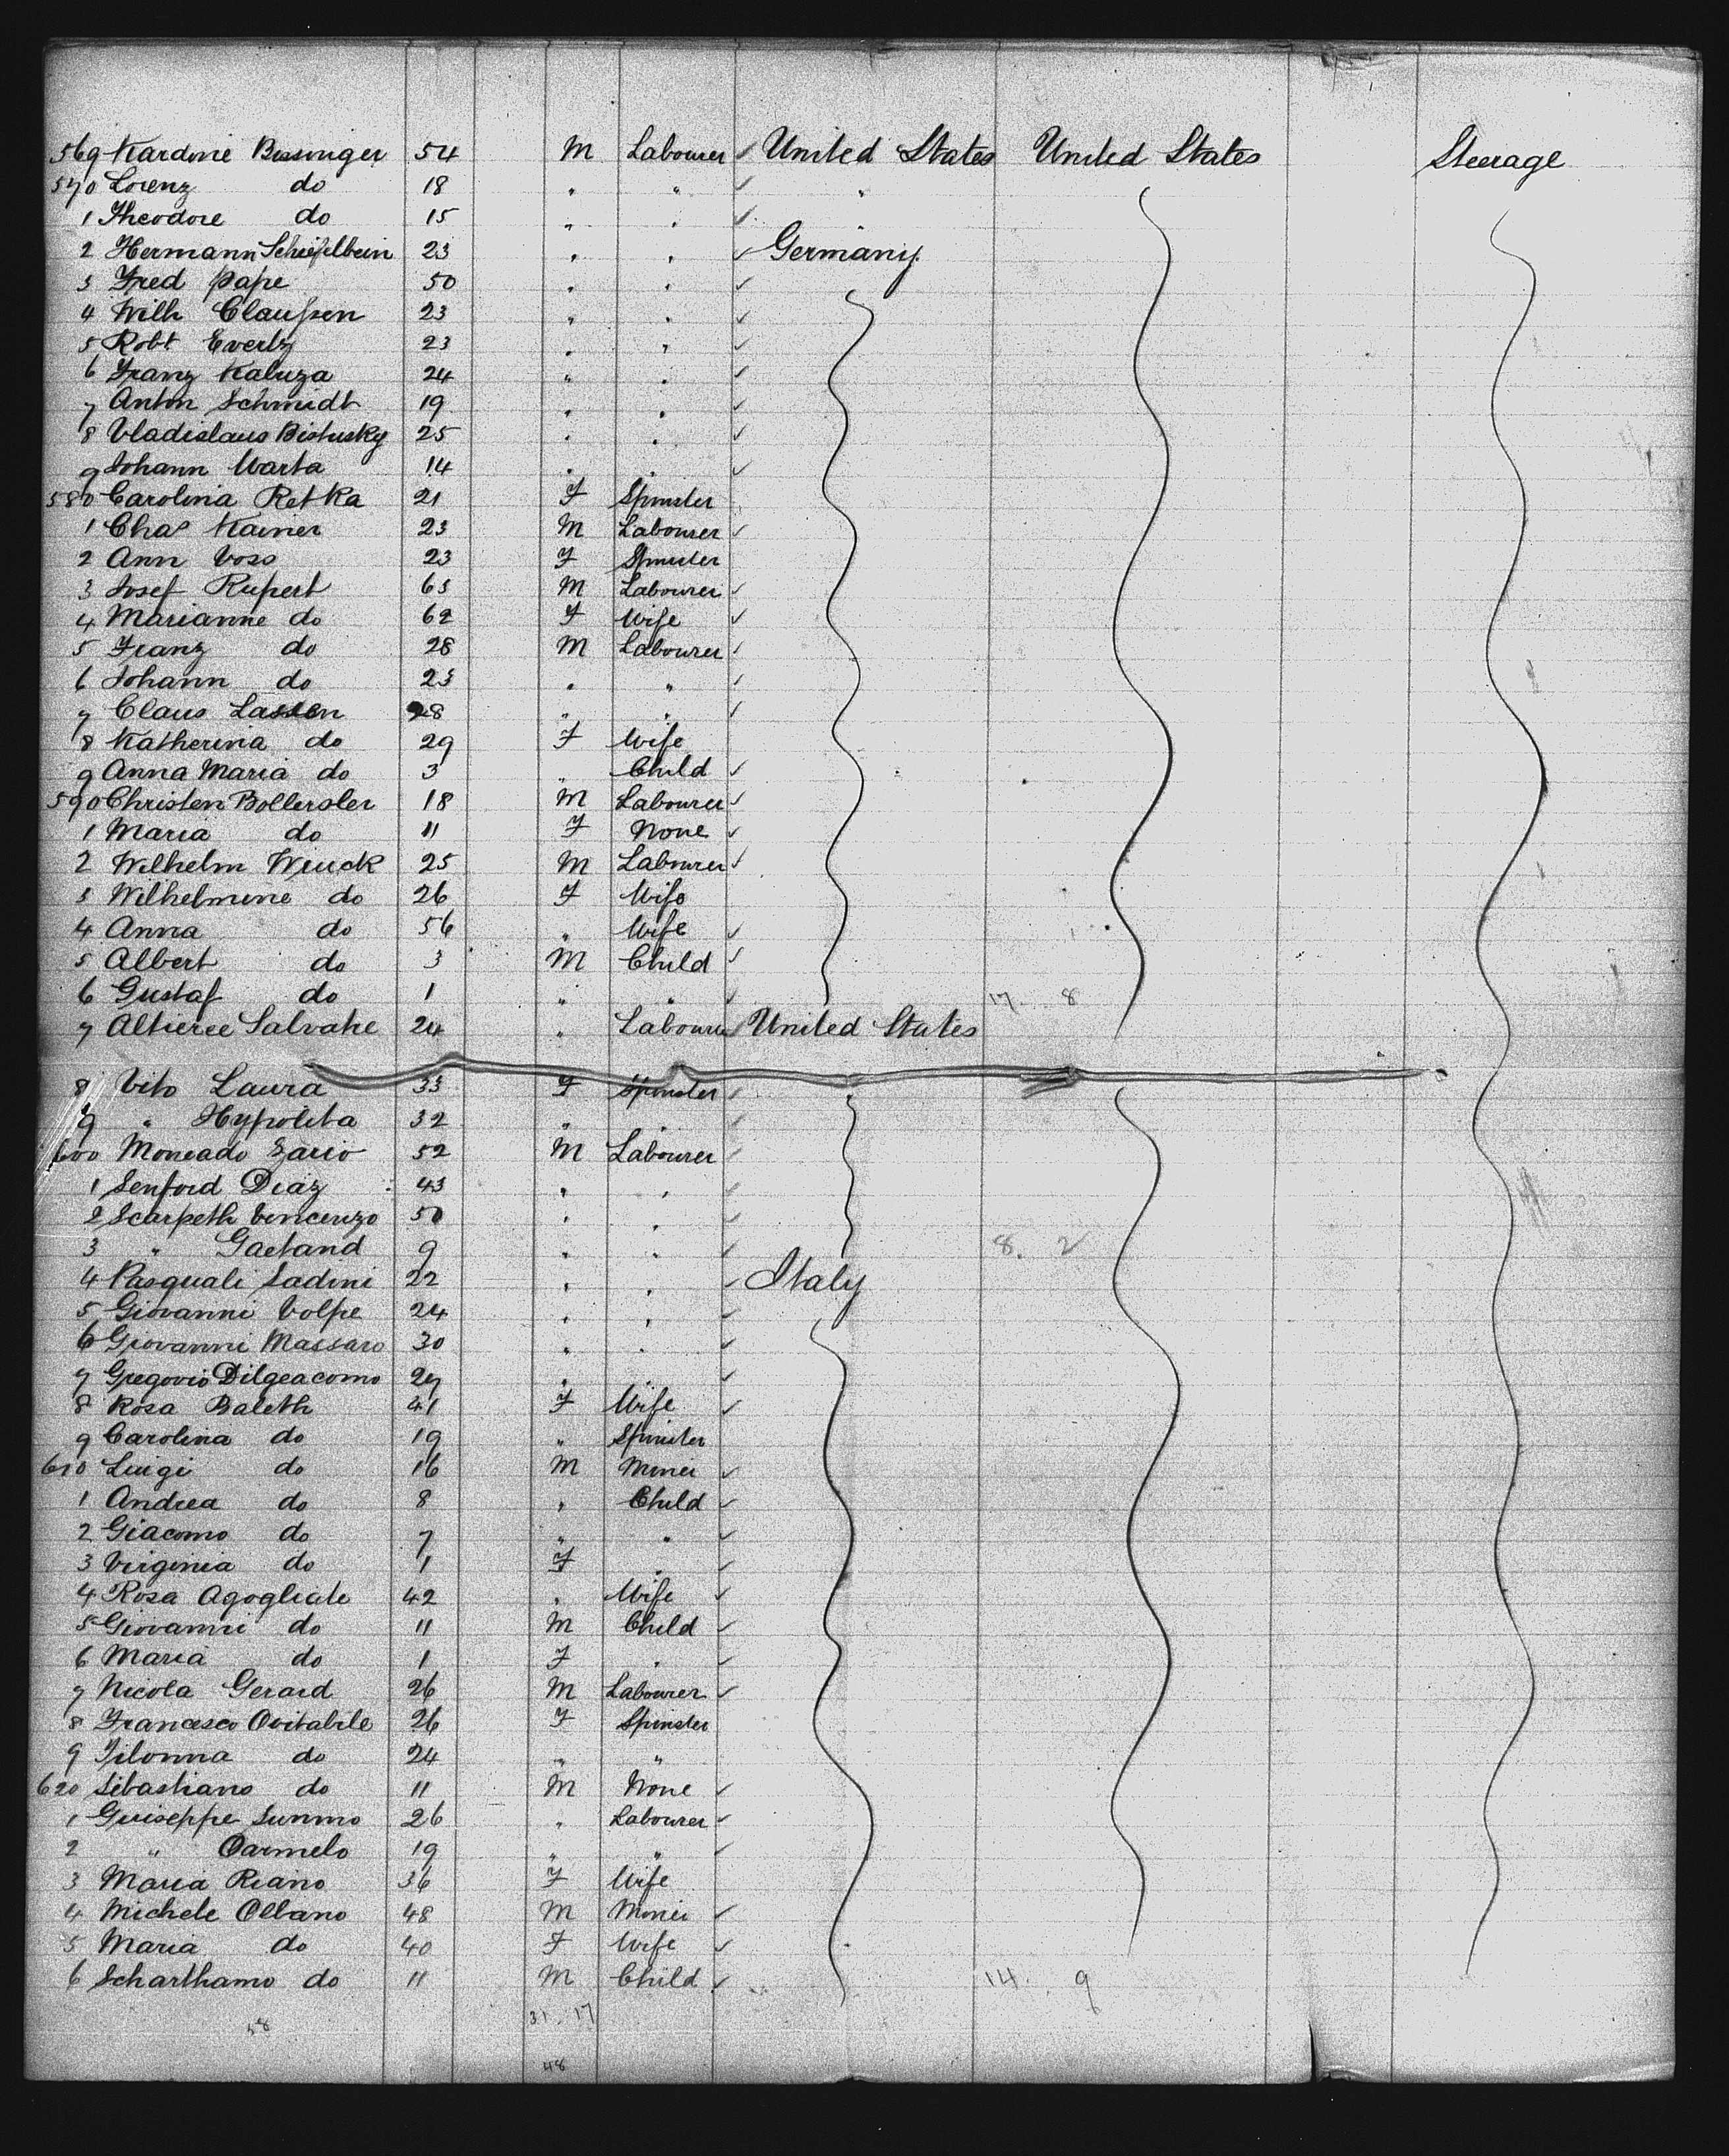 569 Kardine Bissinger 54 M Labourer ✓ United States United States Steerage
570 Lorenz do 18 " " ✓ "
1 Theodore do 15 " " ✓
2 Hermann Schiefelbein 23 " " ✓ Germany
3 Fred Pape 50 " " ✓
4 Wilh Claussen 23 " " ✓
5 Robt Evertz 23 " " ✓
6 Franz Kaluza 24 " " ✓
7 Anton Schmidt 19 " " ✓
8 Vladislaus Bistusky 25 " " ✓
9 Johann Warta 14 " " ✓
580 Carolina Retka 21 F Spinster
1 Chas Kainer 23 M Labourer ✓
2 Ann Voss 23 F Spinster
3 Josef Rupert 63 M Labourer ✓
4 Marianne do 62 F Wife ✓
5 Franz do 28 M Labourer ✓
6 Johann do 23 " " ✓
7 Claus Lassen 28 " " ✓
8 Katherina do 29 F Wife
9 Anna Maria do 3 " Child ✓
590 Christen Bollersler 18 M Labourer ✓
1 Maria do 11 F None ✓
2 Wilhelm Wruck 25 M Labourer ✓
3 Wilhelmine do 26 F Wife
4 Anna do 56 " Wife ✓
5 Albert do 3 M Child ✓
6 Gustaf do 1 " " ✓ 17. 8
7 Altieree Salvatre 24 " Labourer ✓ United States
8 Vito Laura 33 F Spinster ✓
9 " Hypolita 32 " " ✓
600 Moncado Zario 52 M Labourer ✓
1 Senford Diaz 43 " " ✓
2 Scarpeth Vincenzo 50 " " ✓
3 " Gaetand 9 " " ✓ 8. 2
4 Pasquali Sadini 22 " " ✓ Italy
5 Giovanni Volpe 24 " " ✓
6 Giovanni Massaro 30 " " ✓
7 Gregovio Dilgeacomo 27 " " ✓
8 Rosa Baleth 41 F Wife ✓
9 Carolina do 19 " Spinster
610 Luigi do 16 M Miner ✓
1 Andrea do 8 " Child ✓
2 Giacomo do 7 " " ✓
3 Virginia do 1 F " ✓
4 Rosa Agogliate 42 " Wife ✓
5 Giovanni do 11 M Child ✓
6 Maria do 1 F " ✓
7 Nicola Gerard 26 M Labourer ✓
8 Francesco Ovitabile 26 F Spinster
9 Filonna do 24 " "
620 Sebastiano do 11 M None ✓
1 Guiseppe Sunmo 26 " Labourer ✓
2 " Carmelo 19 " " ✓
3 Maria Riano 36 F Wife
4 Michele Olbano 48 M Miner ✓
5 Maria do 40 F Wife ✓
6 Scharthamo do 11 M Child ✓ 14. 9
31. 17
48